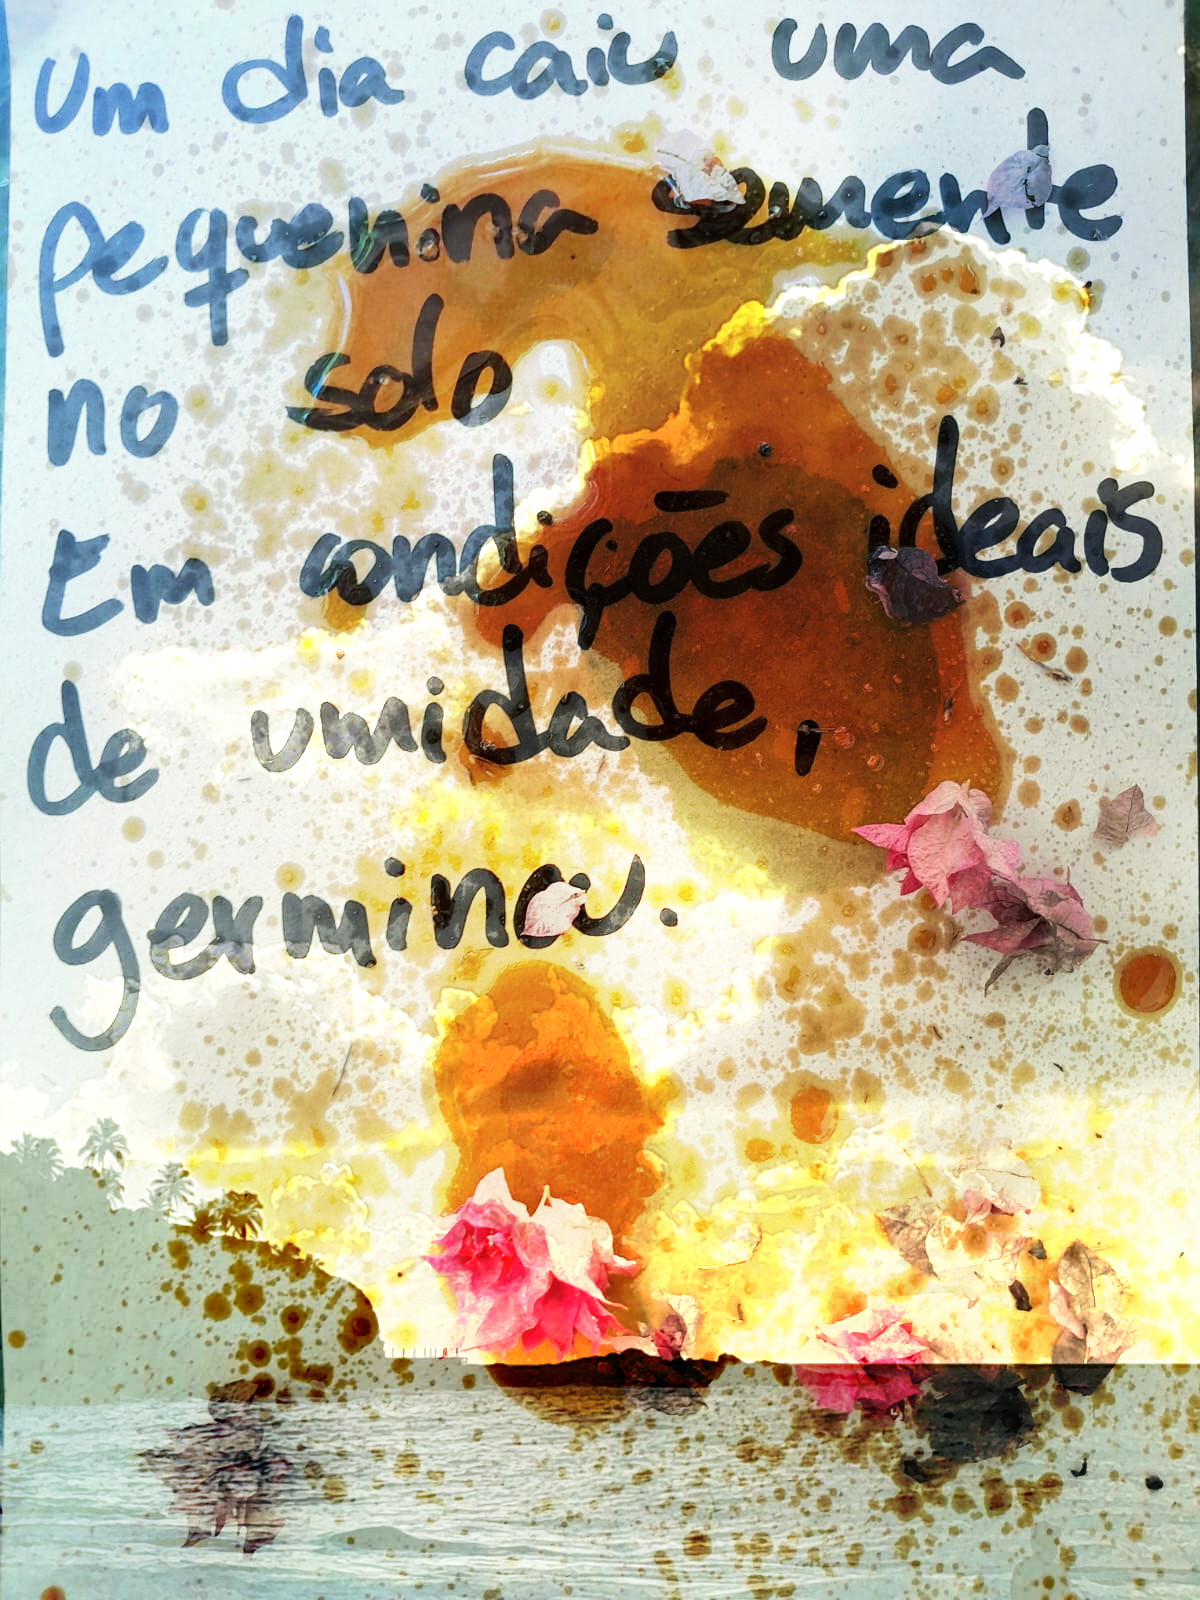 Um dia caiu uma
pequenina semente
no solo
Em condições ideais
de umidade,
germinou.